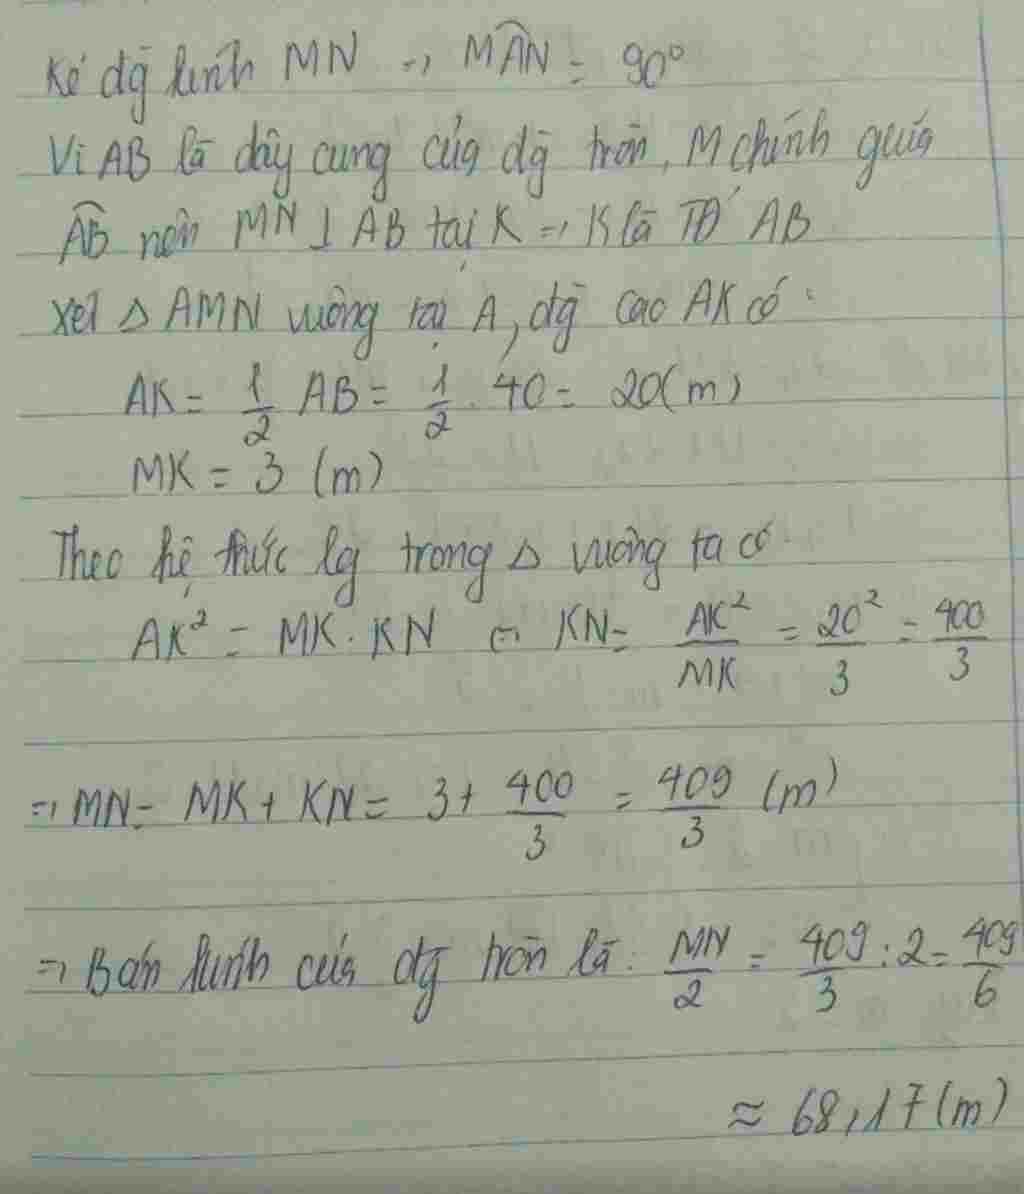 Kẻ đg̃ kính MN => MÂN = 90°
Vì AB là dây cung của đg̃ tròn, M chính giữa
AB nên MN ⊥ AB tại K => K là TĐ' AB
Xét △ AMN vuông tại A, đg̃ cao AK có :
AK = 1/2 AB = 1/2 . 40 = 20(m)
MK = 3 (m)
Theo hệ thức lg trong △ vuông ta có
AK² = MK . KN <=> KN = AK²/MK = 20²/3 = 400/3
=> MN = MK + KN = 3 + 400/3 = 409/3 (m)
=> Bán kính của đg̃ tròn là : MN/2 = 409/3 : 2 = 409/6
≈ 68,17 (m)